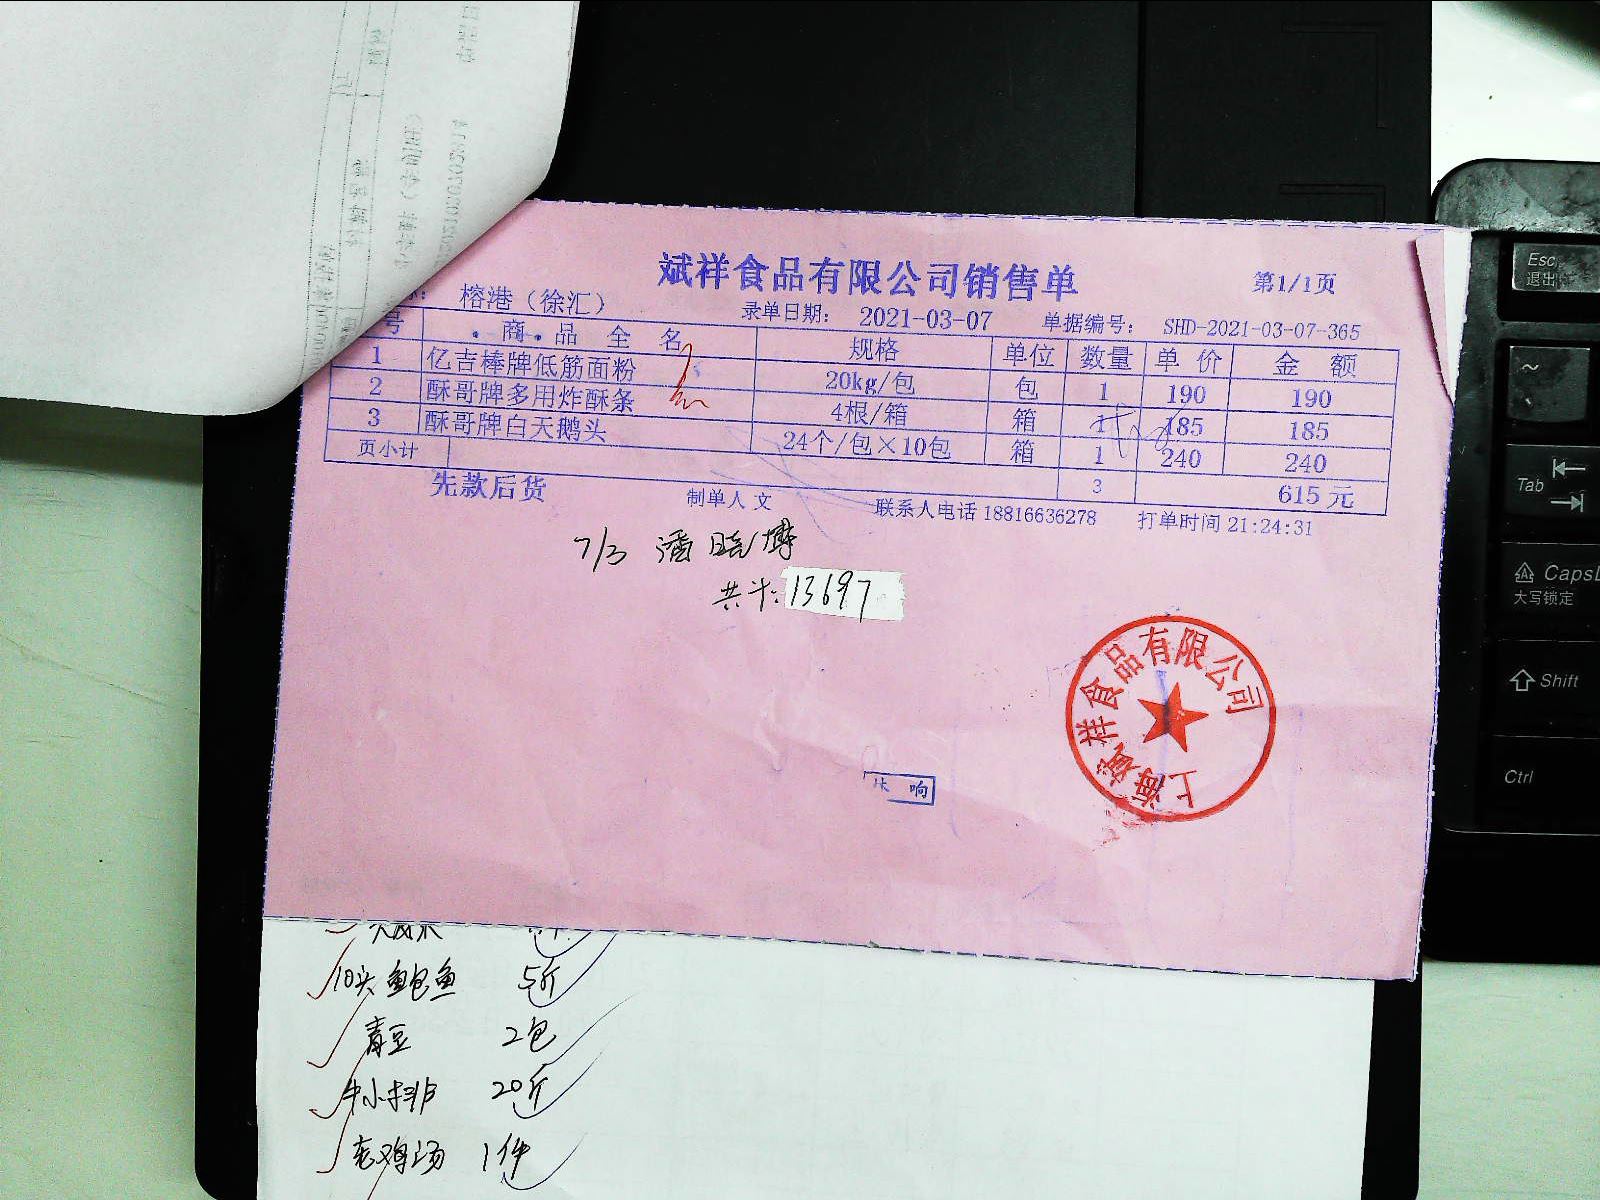 斌祥食品有限公司销售单
第1/1页
榕港（徐汇） 录单日期： 2021-03-07 单据编号： SHD-2021-03-07-365
号 商品全名 规格 单位 数量 单价 金额
1 亿吉棒牌低筋面粉 20kg/包 包 1 190 190
2 酥哥牌多用炸酥条 4根/箱 箱 1 185 185
3 酥哥牌白天鹅头 24个/包×10包 箱 1 240 240
页小计 3 615元
先款后货 制单人 文 联系人电话 18816636278 打单时间 21:24:31
7/3 潘晓博
共计: 13697
祥食品有限公司
上海
响
10头鲍鱼 5斤
青豆 2包
牛小排 20斤
老鸡汤 1件
Esc
退出
~
Tab
CapsL
大写锁定
Shift
Ctrl